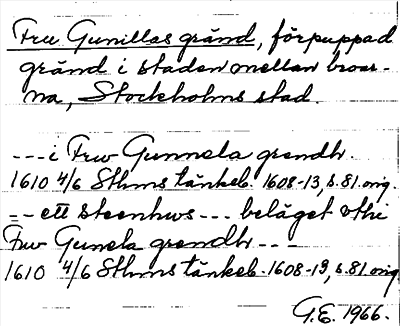 Fru Gunillas gränd, förpuppad
gränd i staden mellan broar-
na, Stockholms stad.
---i Frw Gunnela grendh.
1610 4/6 Sthms tänkeb. 1608-13, s. 81. orig.
=-- ett steenhws --- beläget vthi
Frw Gunela grendh ---
1610 4/6 Sthms tänkeb. 1608-13, s. 81. orig
G.E. 1966.